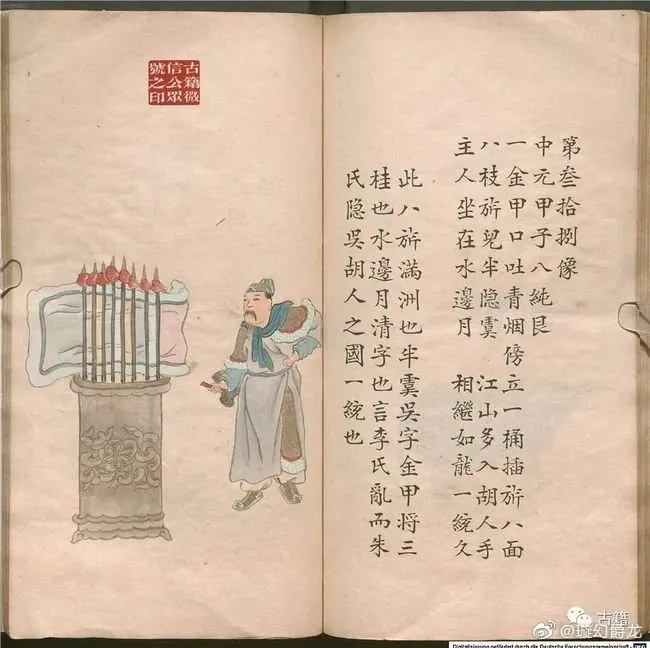 第叁拾捌像
中元甲子八純艮
一金甲口吐青烟傍立一桶插旂八面
八枝旂皃半隐虞 江山多入胡人手
主人坐在水邊月 相繼如龍一統久
此八旂滿洲也半虞吳字金甲将三
桂也水邊月清字也言李氏亂而朱
氏隐吳胡人之國一統也
古籍微
信公眾
號之印
古籍
@璇幻爵龙
Digitalisierung gefördert durch die Deutsche Forschungsgemeinschaft